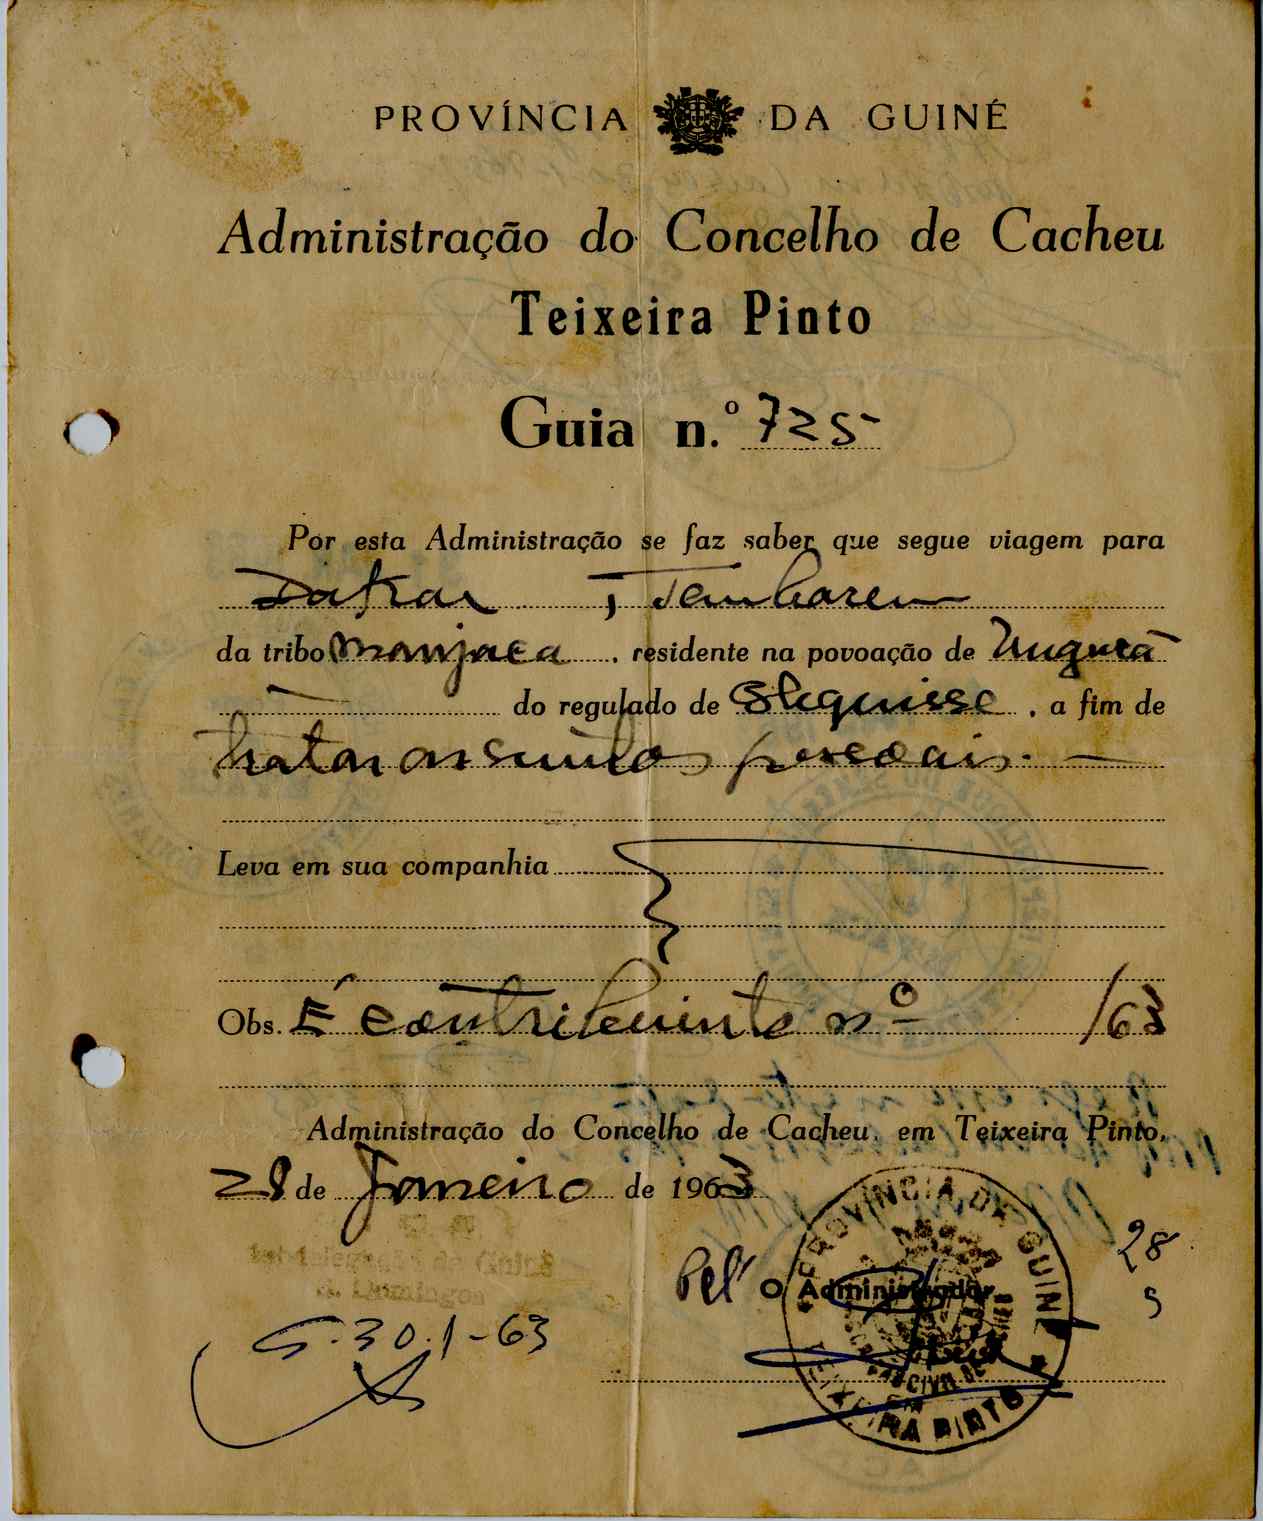 PROVÍNCIA DA GUINÉ
Administração do Concelho de Cacheu
Teixeira Pinto
Guia n.º 725
Por esta Administração se faz saber que segue viagem para
Dakar
da tribo Manjaca, residente na povoação de
do regulado de, a fim de
tratar assuntos pessoais.
Leva em sua companhia
Obs. É contribuinte nº /63
Administração do Concelho de Cacheu, em Teixeira Pinto,
28 de Janeiro de 1963
Pel' O Administrador
PROVÍNCIA DA GUINÉ
TEIXEIRA PINTO
28
S. 30-1-63